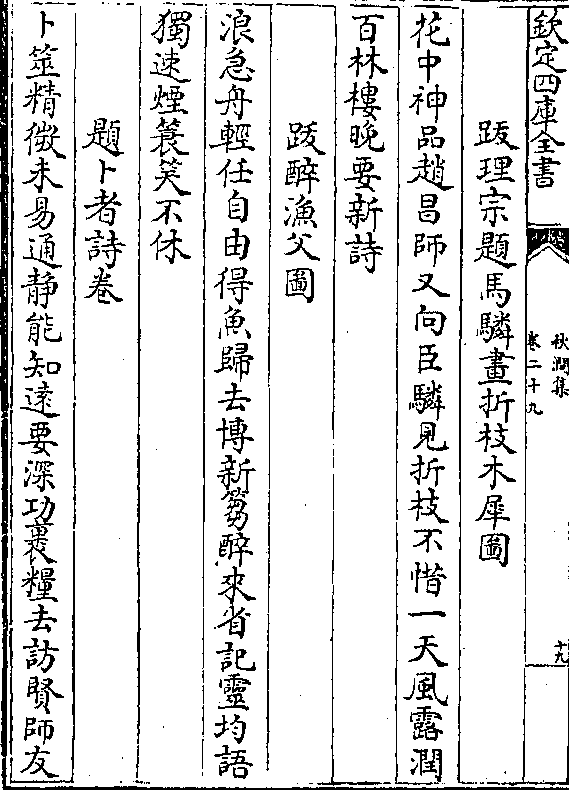 欽定四庫全書
秋澗集
卷二十九
十九
跋理宗題馬驎畫折枝木犀圖
花中神品趙昌師又向臣驎見折枝不惜一天風露潤
百林樓晚要新詩
跋醉漁父圖
浪急舟輕任自由得魚歸去博新篘醉來省記靈均語
獨速煙蓑笑不休
題卜者詩卷
卜筮精微未易通靜能知遠要深功裹糧去訪賢師友